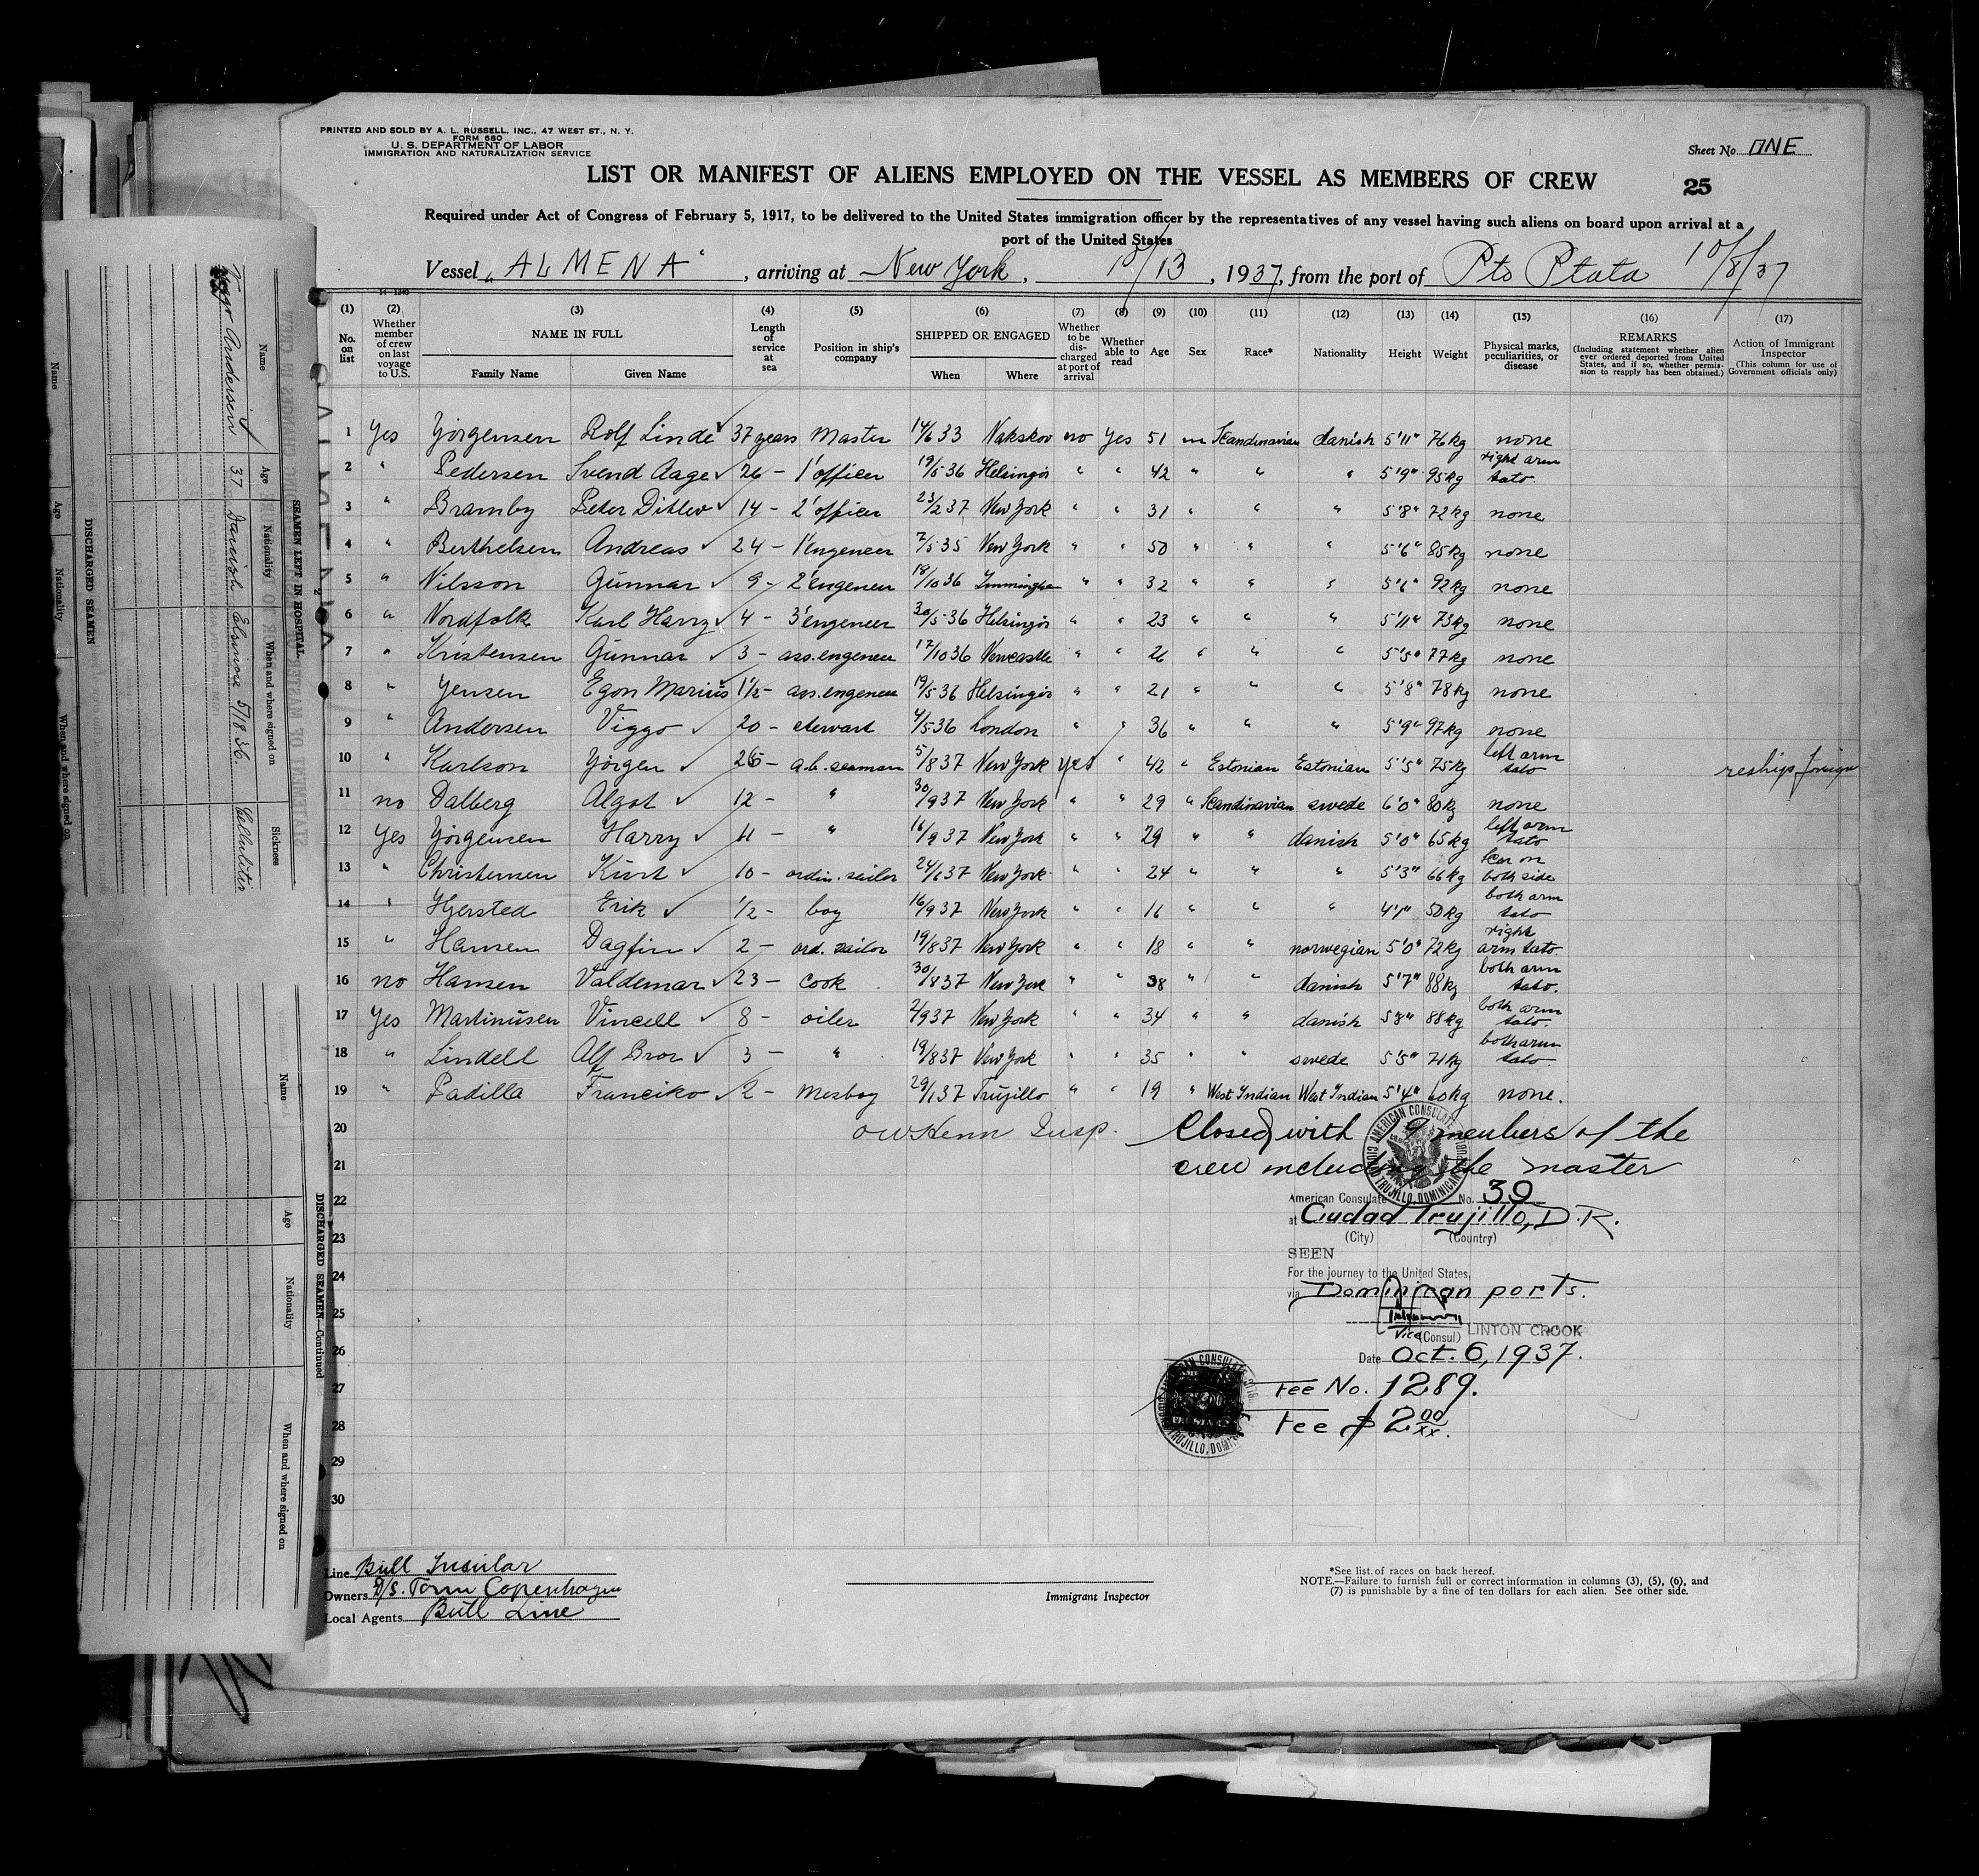 PRINTED AND SOLD BY A. L. RUSSELL, INC., 47 WEST ST., N. Y.
FORM 680
U. S. DEPARTMENT OF LABOR
IMMIGRATION AND NATURALIZATION SERVICE
Sheet No. ONE
LIST OR MANIFEST OF ALIENS EMPLOYED ON THE VESSEL AS MEMBERS OF CREW
25
Required under Act of Congress of February 5, 1917, to be delivered to the United States immigration officer by the representatives of any vessel having such aliens on board upon arrival at a
port of the United States
Vessel "ALMENA", arriving at New York, 10/13, 1937, from the port of Pto Plata 10/8/37
(1) (2) (3) (4) (5) (6) (7) (8) (9) (10) (11) (12) (13) (14) (15) (16) (17)
No. on list
Whether member of crew on last voyage to U.S.
NAME IN FULL
Family Name Given Name
Length of service at sea
Position in ship's company
SHIPPED OR ENGAGED
When Where
Whether to be discharged at port of arrival
Whether able to read
Age
Sex
Race*
Nationality
Height
Weight
Physical marks, peculiarities, or disease
REMARKS
(Including statement whether alien ever ordered deported from United States, and if so, whether permission to reapply has been obtained.)
Action of Immigrant Inspector
(This column for use of Government officials only)
1 Yes Jörgensen Rolf Linde 37 years Master 14/6 33 Nakskov no Yes 51 m Scandinavian danish 5'11" 76kg none
2 " Pedersen Svend Aage 26 - 1' officer 19/5-36 Helsingör " " 42 " " " 5'9" 95kg right arm tato.
3 " Bramby Peter Ditlev 14 - 2' officer 23/2 37 New York " " 31 " " " 5'8" 72kg none
4 " Berthelsen Andreas 24 - 1' engeneer 7/5-35 New York " " 50 " " " 5'6" 85kg none
5 " Nilsson Gunnar 9 - 2' engeneer 18/10 36 Immingham " " 32 " " " 5'6" 92kg none
6 " Nordfolk Karl Harry 4 - 3' engeneer 30/5-36 Helsingör " " 23 " " " 5'11" 73kg none
7 " Kristensen Gunnar 3 - ass. engeneer 17/10 36 Newcastle " " 26 " " " 5'5" 77kg none
8 " Jensen Egon Marius 1½ - ass. engeneer 19/5-36 Helsingör " " 21 " " " 5'8" 78kg none
9 " Andersen Viggo 20 - stewart 4/5-36 London " " 36 " " " 5'9" 97kg none
10 " Karlson Jörgen 26 - a.b. seaman 5/8 37 New York yes " 42 " Estonian Estonian 5'5" 75kg left arm tato reships foreign
11 no Dalberg Algot 12 - " 30/9 37 New York " " 29 " Scandinavian swede 6'0" 80kg none
12 Yes Jörgensen Harry 11 - " 16/9 37 New York " " 29 " " danish 5'0" 65kg left arm tato
13 " Christensen Kurt 10 - ordin. sailor 24/6 37 New York " " 24 " " " 5'3" 66kg on both side
14 " Hjersted Erik ½ - boy 16/9 37 New York " " 16 " " " 4'1" 50kg both arm tato
15 " Hansen Dagfin 2 - ord. sailor 19/8 37 New York " " 18 " " norwegian 5'0" 72kg right arm tato.
16 no Hansen Valdemar 23 - cook 30/8 37 New York " " 38 " " danish 5'7" 88kg both arm tato.
17 Yes Martinusen Vincell 8 - oiler 2/9 37 New York " " 34 " " danish 5'8" 88kg both arm tato.
18 " Lindell Alf Bror 3 - " 19/8 37 New York " " 35 " " swede 5'5" 71kg both arm tato.
19 " Padilla Franciko 2 - Mesboy 29/1 37 Trujillo " " 19 " West Indian West Indian 5'4" 60kg none.
20
21
22
23
24
25
26
27
28
29
30
Insp.
Closed with 19 members of the
crew including the master
AMERICAN CONSULATE
American Consulate No. 39
at Ciudad Trujillo, D.R.
(City) (Country)
SEEN
For the journey to the United States,
via Dominican ports.
Vice (Consul) LINTON CROOK
Date Oct. 6, 1937.
Fee No. 1289.
Fee $ 2 00/xx.
Line Bull Insular
Owners D/S. Torm Copenhagen
Local Agents Bull Line
Immigrant Inspector
*See list of races on back hereof.
NOTE.—Failure to furnish full or correct information in columns (3), (5), (6), and
(7) is punishable by a fine of ten dollars for each alien. See other side.
SEAMEN LEFT IN HOSPITAL
Name Age Nationality When and where signed on Sickness
Viggo Andersen 37 Danish Elsinore 5/18.36. Cellulitis
DISCHARGED SEAMEN
Name Age Nationality When and where signed on
DISCHARGED SEAMEN—Continued
Name Age Nationality When and where signed on